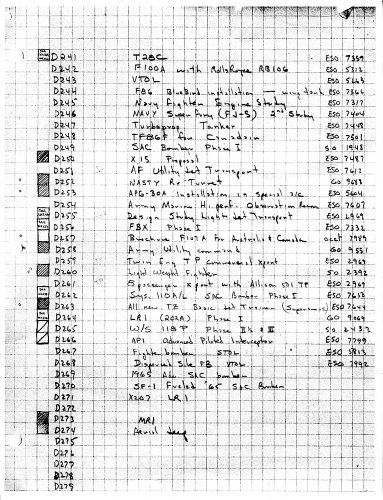 D241 T28C ESO 7359
D242 F100A with Rolls Royce RB106 ESO 5313
D243 VTOL ESO 5663
D244 F86 Bluebird installation - wing tank ESO 7366
D245 Navy Fighter Engine Study ESO 7317
D246 NAVY Super Army (FJ-5) 2nd Study ESO 7404
D247 Turboprop Tanker ESO 7448
D248 TF86F for Canadair ESO 7501
D249 SAC Bomber Phase I SO 1948
D250 X15 Proposal ESO 7487
D251 AF Utility Jet Transport ESO 7612
D252 NASTY Re Turret GO 9683
D253 APG-30A Installation in Special A/C ESO 5604
D254 Army Marine Hi perf. Observation Recon ESO 7607
D255 Design Study Light Jet Transport ESO 2969
D256 FBX Phase I ESO 7332
D257 Brochure F107A for Australia & Canada 7989
D258 Army Utility command GO 9551
D259 Twin Eng TP commercial xport ESO 2969
D260 Light Weight Fighter SO 2392
D261 5 passenger xport with Allison 501 TP ESO 2969
D262 Sys. 110A/L SAC Bomber Phase I ESO 7613
D263 All new TZ Basic Jet Trainer ESO 7644
D264 LRI (202A) Phase I GO 9909
D265 W/S 118P Phase II & III SO 2432
D266 API Advanced Piloted Interceptor ESO 7799
D267 Fighter bomber STOL ESO 5813
D268 Dispersed Site FB VTOL ESO 7992
D269 1965 ADC SAC bomber
D270 SF-1 Fueled '65 SAC Bomber
D271 X207 LRI
D272
D273 MRI
D274 Aerial Jeep
D275
D276
D277
D278
D279